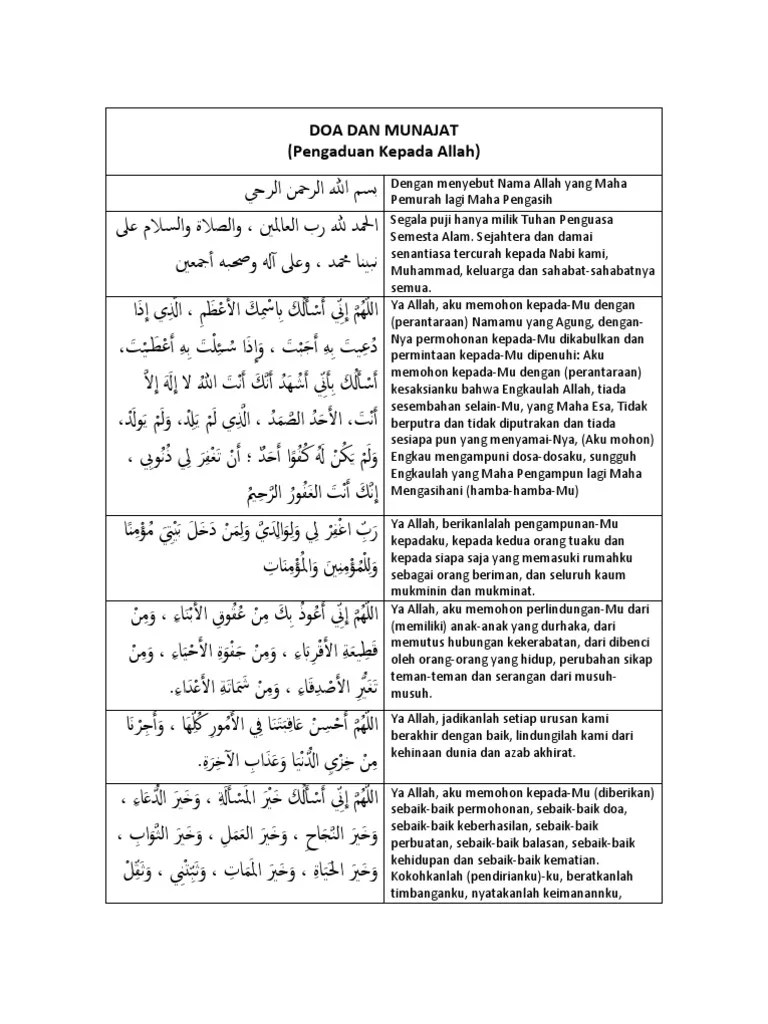 DOA DAN MUNAJAT
(Pengaduan Kepada Allah)
بسم الله الرحمن الرحي
Dengan menyebut Nama Allah yang Maha
Pemurah lagi Maha Pengasih
الحمد لله رب العالمين ، والصلاة والسلام على
نبينا محمد ، وعلى آله وصحبه أجمعين
Segala puji hanya milik Tuhan Penguasa
Semesta Alam. Sejahtera dan damai
senantiasa tercurah kepada Nabi kami,
Muhammad, keluarga dan sahabat-sahabatnya
semua.
اللَّهُمَّ إِنِّي أَسْأَلُكَ بِاسْمِكَ الأَعْظَمِ ، الَّذِي إِذَا
دُعِيتَ بِهِ أَجَبْتَ ، وَإِذَا سُئِلْتَ بِهِ أَعْطَيْتَ،
أَسْأَلُكَ بِأَنِّي أَشْهَدُ أَنَّكَ أَنْتَ اللهُ لا إِلَهَ إِلاَّ
أَنْتَ، الأَحَدُ الصَّمَدُ ، الَّذِي لَمْ يَلِدْ، وَلَمْ يَولَدْ،
وَلَمْ يَكُنْ لَهُ كُفُوًا أَحَدٌ ؛ أَنْ تَغْفِرَ لِي ذُنُوبِي ،
إِنَّكَ أَنْتَ الغَفُورُ الرَّحِيمُ
Ya Allah, aku memohon kepada-Mu dengan
(perantaraan) Namamu yang Agung, dengan-
Nya permohonan kepada-Mu dikabulkan dan
permintaan kepada-Mu dipenuhi: Aku
memohon kepada-Mu dengan (perantaraan)
kesaksianku bahwa Engkaulah Allah, tiada
sesembahan selain-Mu, yang Maha Esa, Tidak
berputra dan tidak diputrakan dan tiada
sesiapa pun yang menyamai-Nya, (Aku mohon)
Engkau mengampuni dosa-dosaku, sungguh
Engkaulah yang Maha Pengampun lagi Maha
Mengasihani (hamba-hamba-Mu)
رَبِّ اغْفِرْ لِي وَلِوَالِدَيَّ وَلِمَنْ دَخَلَ بَيْتِيَ مُؤْمِنًا
وَلِلْمُؤْمِنِينَ وَالْمُؤْمِنَاتِ
Ya Allah, berikanlalah pengampunan-Mu
kepadaku, kepada kedua orang tuaku dan
kepada siapa saja yang memasuki rumahku
sebagai orang beriman, dan seluruh kaum
mukminin dan mukminat.
اللَّهُمَّ إِنِّي أَعُوذُ بِكَ مِنْ عُقُوقِ الأَبْنَاءِ ، وَمِنْ
قَطِيعَةِ الأَقْرِبَاءِ ، وَمِنْ جَفْوَةِ الأَحْيَاءِ ، وَمِنْ
تَغَيُّرِ الأَصْدِقَاءِ ، وَمِنْ شَمَاتَةِ الأَعْدَاءِ.
Ya Allah, aku memohon perlindungan-Mu dari
(memiliki) anak-anak yang durhaka, dari
memutus hubungan kekerabatan, dari dibenci
oleh orang-orang yang hidup, perubahan sikap
teman-teman dan serangan dari musuh-
musuh.
اللَّهُمَّ أَحْسِنْ عَاقِبَتَنَا فِي الأُمُورِ كُلِّهَا ، وَأَجِرْنَا
مِنْ خِزْيِ الدُّنْيَا وَعَذَابِ الآخِرَةِ.
Ya Allah, jadikanlah setiap urusan kami
berakhir dengan baik, lindungilah kami dari
kehinaan dunia dan azab akhirat.
اللَّهُمَّ إِنِّي أَسْأَلُكَ خَيْرَ المَسْأَلَةِ ، وَخَيْرَ الدُّعَاءِ ،
وَخَيْرَ النَّجَاحِ ، وَخَيْرَ العَمَلِ ، وَخَيْرَ الثَّوَابِ ،
وَخَيْرَ الحَيَاةِ ، وَخَيْرَ المَمَاتِ ، وَثَبِّتْنِي ، وَثَقِّلْ
Ya Allah, aku memohon kepada-Mu (diberikan)
sebaik-baik permohonan, sebaik-baik doa,
sebaik-baik keberhasilan, sebaik-baik
perbuatan, sebaik-baik balasan, sebaik-baik
kehidupan dan sebaik-baik kematian.
Kokohkanlah (pendirianku)-ku, beratkanlah
timbanganku, nyatakanlah keimanannku,